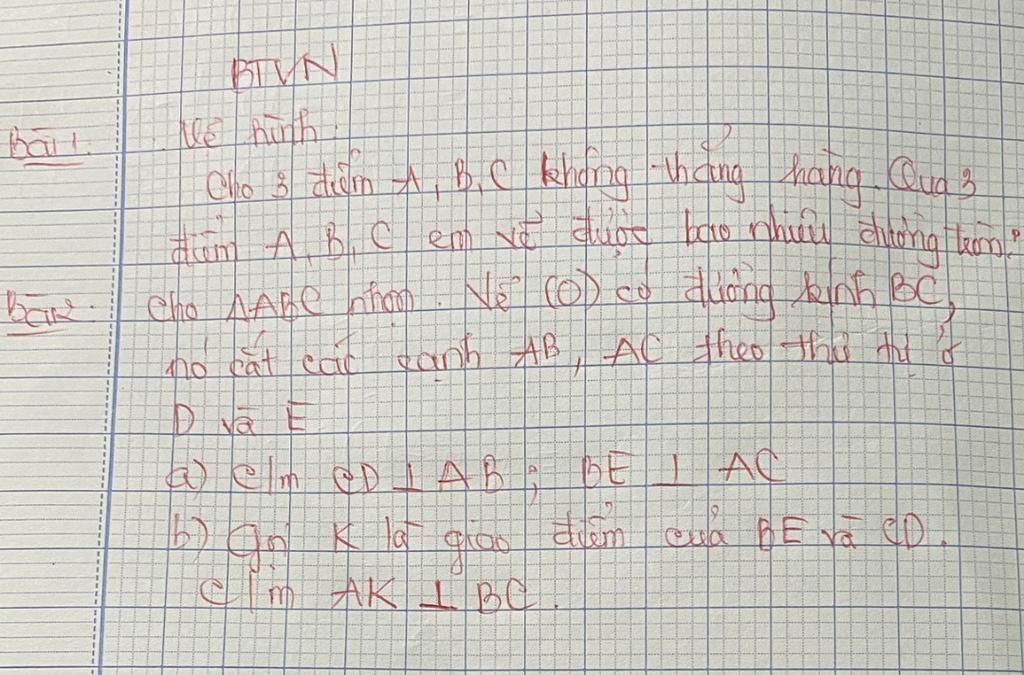 BTVN
Bài 1. Vẽ hình.
Cho 3 điểm A, B, C không thẳng hàng. Qua 3
điểm A, B, C em vẽ được bao nhiêu đường tròn?
Bài 2. Cho ΔABC nhọn. Vẽ (O) có đường kính BC,
nó cắt các cạnh AB, AC theo thứ tự ở
D và E
a) C/m CD ⊥ AB ; BE ⊥ AC
b) Gọi K là giao điểm của BE và CD.
C/m AK ⊥ BC.